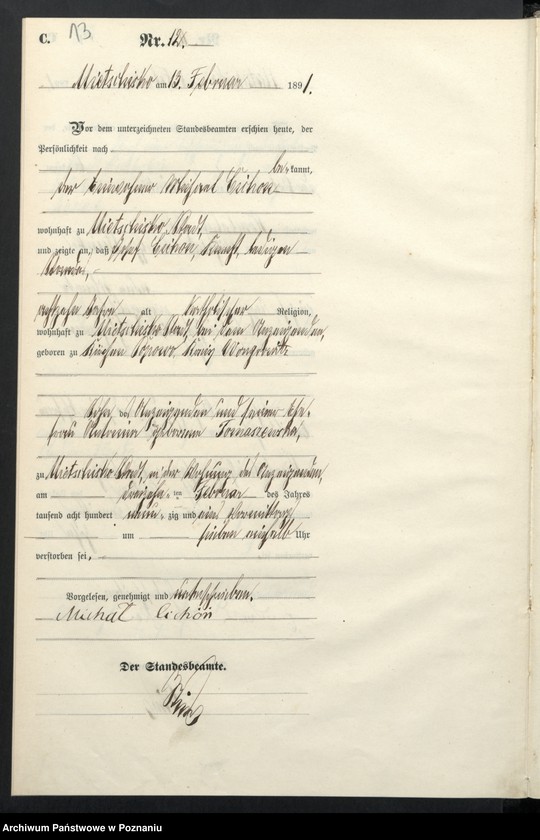 C. 13 Nr. 12.
Mietschisko am 13. Februar 1891.
Vor dem unterzeichneten Standesbeamten erschien heute, der
Persönlichkeit nach
be kannt,
der Einwohner Michael Cichon
wohnhaft zu Mietschisko Stadt,
und zeigte an, daß Josef Cichon,
achtzehn Jahre alt katholischer Religion,
wohnhaft zu Mietschisko Stadt bei dem Anzeigenden,
geboren zu Kreis Wongrowitz
Sohn des Anzeigenden und seiner Ehe-
frau Antonina geborenen Tomaszewska,
zu Mietschisko Stadt, in der Wohnung des Anzeigenden,
am ten Februar des Jahres
tausend acht hundert neun zig und eins Vormittags
um sieben einhalb Uhr
verstorben sei.
Vorgelesen, genehmigt und unterschrieben.
Michał Cichoń
Der Standesbeamte.
Archiwum Państwowe w Poznaniu